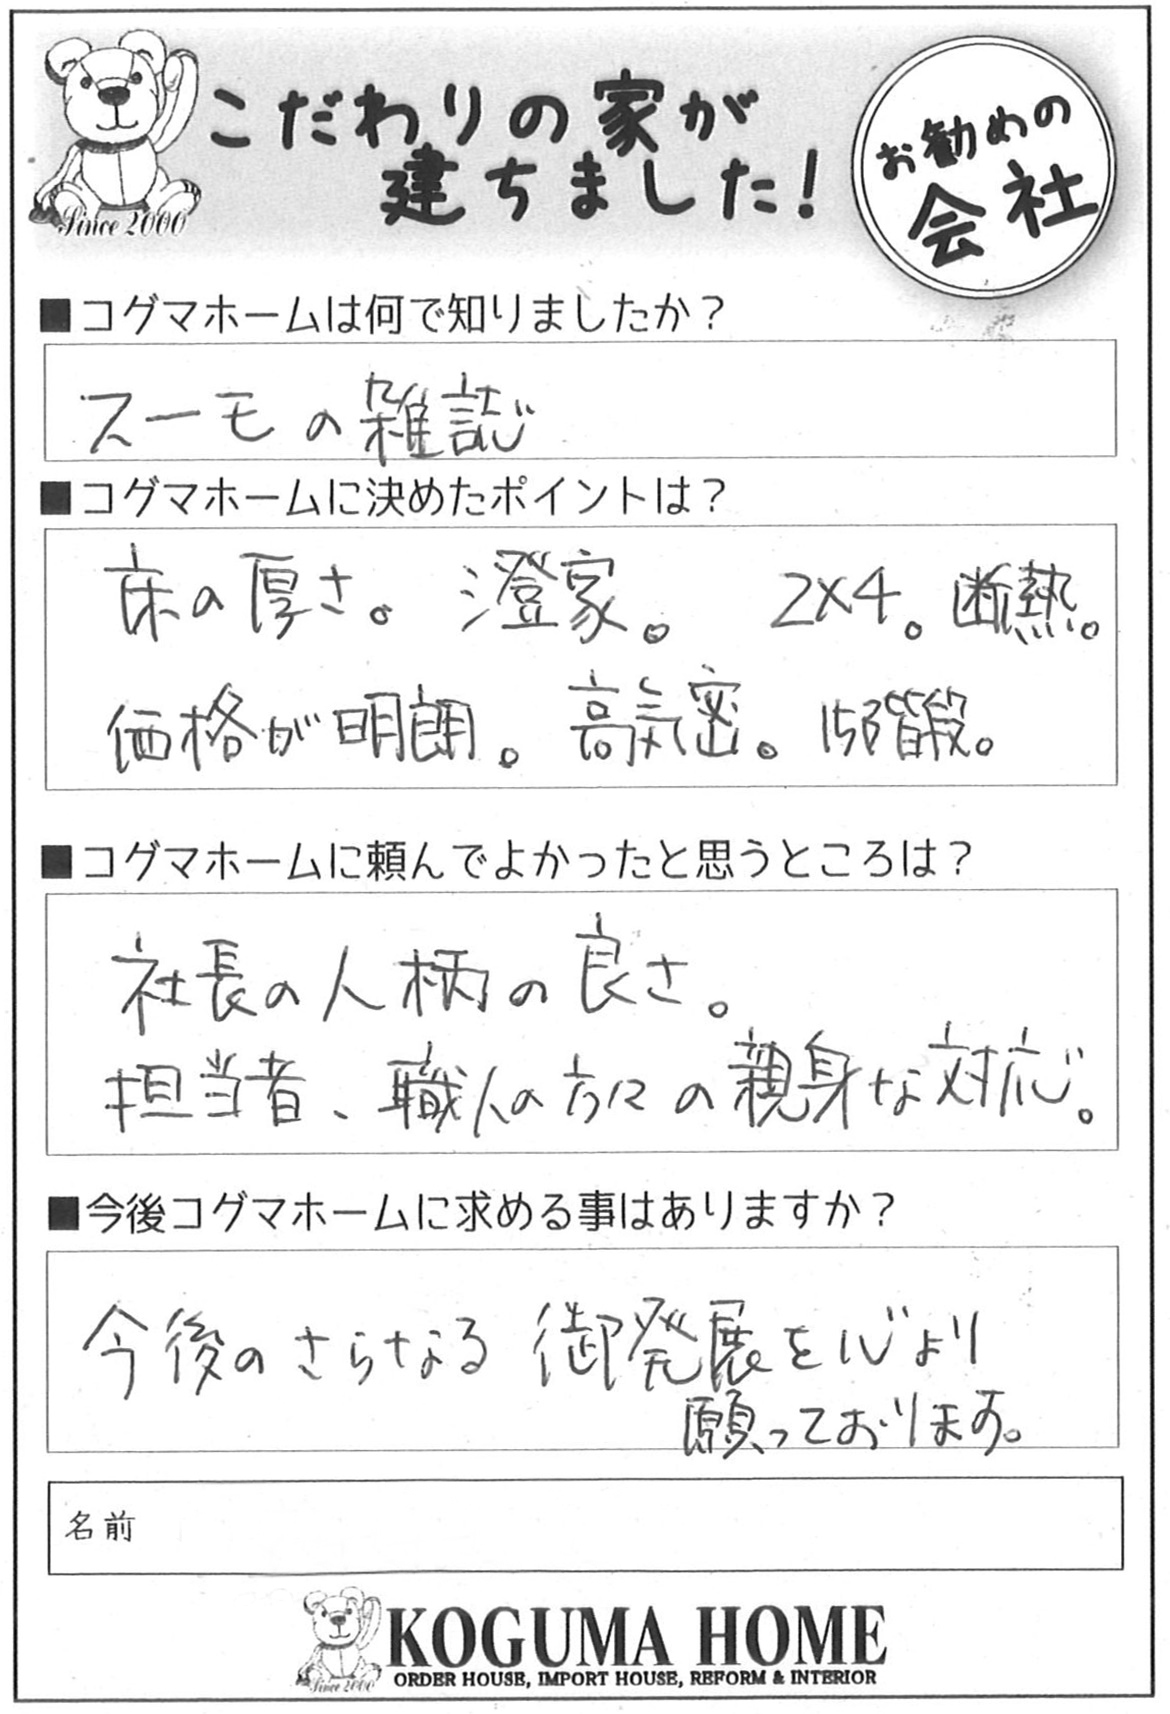 こだわりの家が
建ちました!
お勧めの
会社
Since 2000
■コグマホームは何で知りましたか?
スーモの雑誌
■コグマホームに決めたポイントは?
床の厚さ。 澄家。 2×4。断熱。
価格が明朗。 高気密。 15段階段。
■コグマホームに頼んでよかったと思うところは?
社長の人柄の良さ。
担当者、職人の方々の親身な対応。
■今後コグマホームに求める事はありますか?
今後のさらなる 御発展を心より
願っております。
名前
Since 2000
KOGUMA HOME
ORDER HOUSE, IMPORT HOUSE, REFORM & INTERIOR